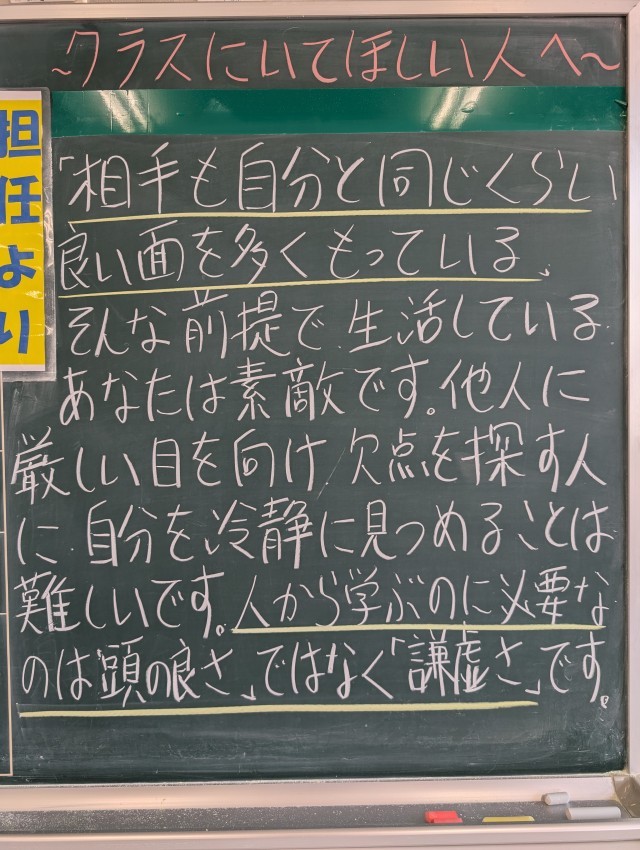 ~クラスにいてほしい人へ~
担任より
「相手も自分と同じくらい
良い面を多くもっている」
そんな前提で生活している
あなたは素敵です。他人に
厳しい目を向け欠点を探す人
に自分を冷静に見つめることは
難しいです。人から学ぶのに必要な
のは「頭の良さ」ではなく「謙虚さ」です。